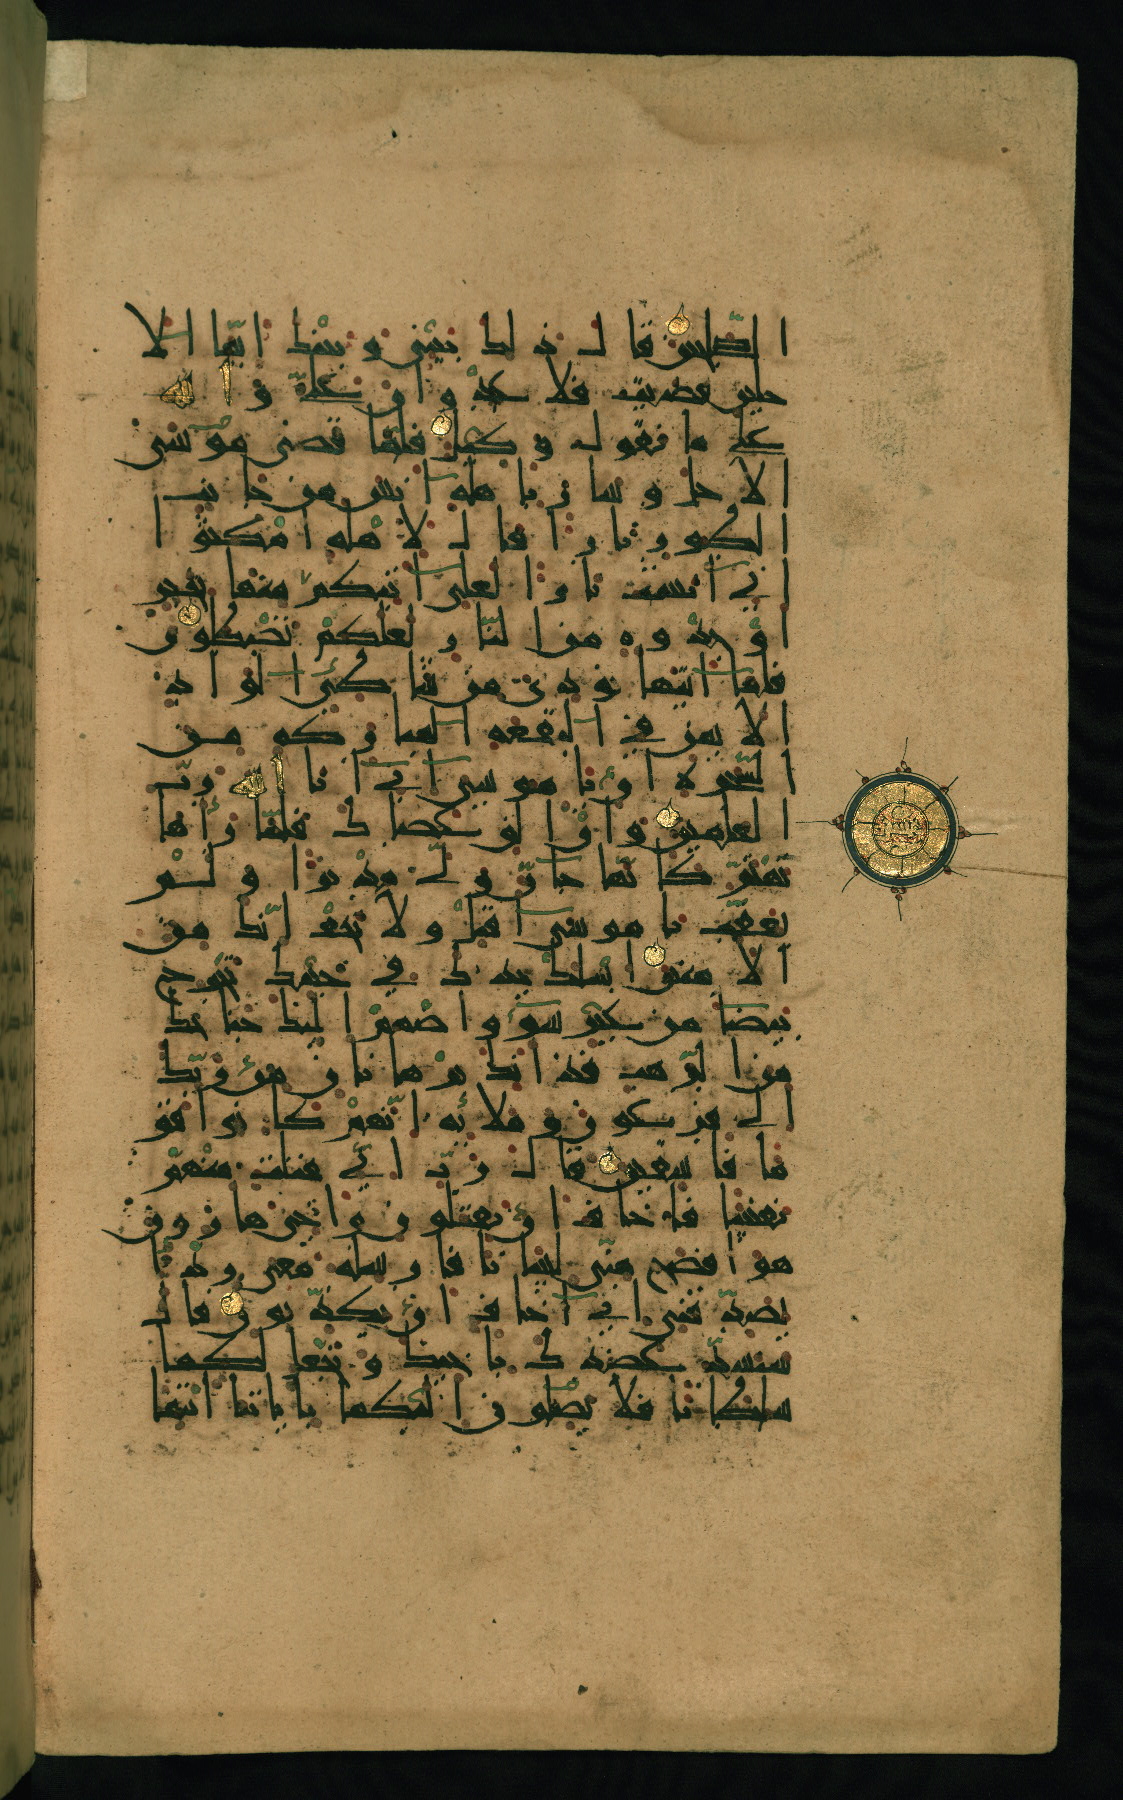 الصلحين قال ذلك بيني وبينك ايما الا
جلين قضيت فلا عدوان علي و الله
على ما نقول وكيل فلما قضى موسى
الاجل وسار باهله آنس من جانب
الطور نارا قال لاهله امكثوا
اني آنست نارا لعلي آتيكم منها بخبر
او جذوة من النار لعلكم تصطلون
فلما اتيها نودي من شاطئ الواد
الايمن في البقعة المباركة من
الشجرة ان يا موسى اني انا الله رب
العلمين وان الق عصاك فلما رآها
تهتز كانها جان ولى مدبرا ولم
يعقب يا موسى اقبل ولا تخف انك من
الآمنين اسلك يدك في جيبك تخرج
بيضا من غير سوء واضمم اليك جناحك
من الرهب فذانك برهانان من ربك
الى فرعون وملائه انهم كانوا قو
ما فاسقين قال رب اني قتلت منهم
نفسا فاخاف ان يقتلون واخي هارون
هو افصح مني لسانا فارسله معي ردءا
يصدقني اني اخاف ان يكذبون قال
سنشد عضدك باخيك ونجعل لكما
سلطانا فلا يصلون اليكما باياتنا انتما